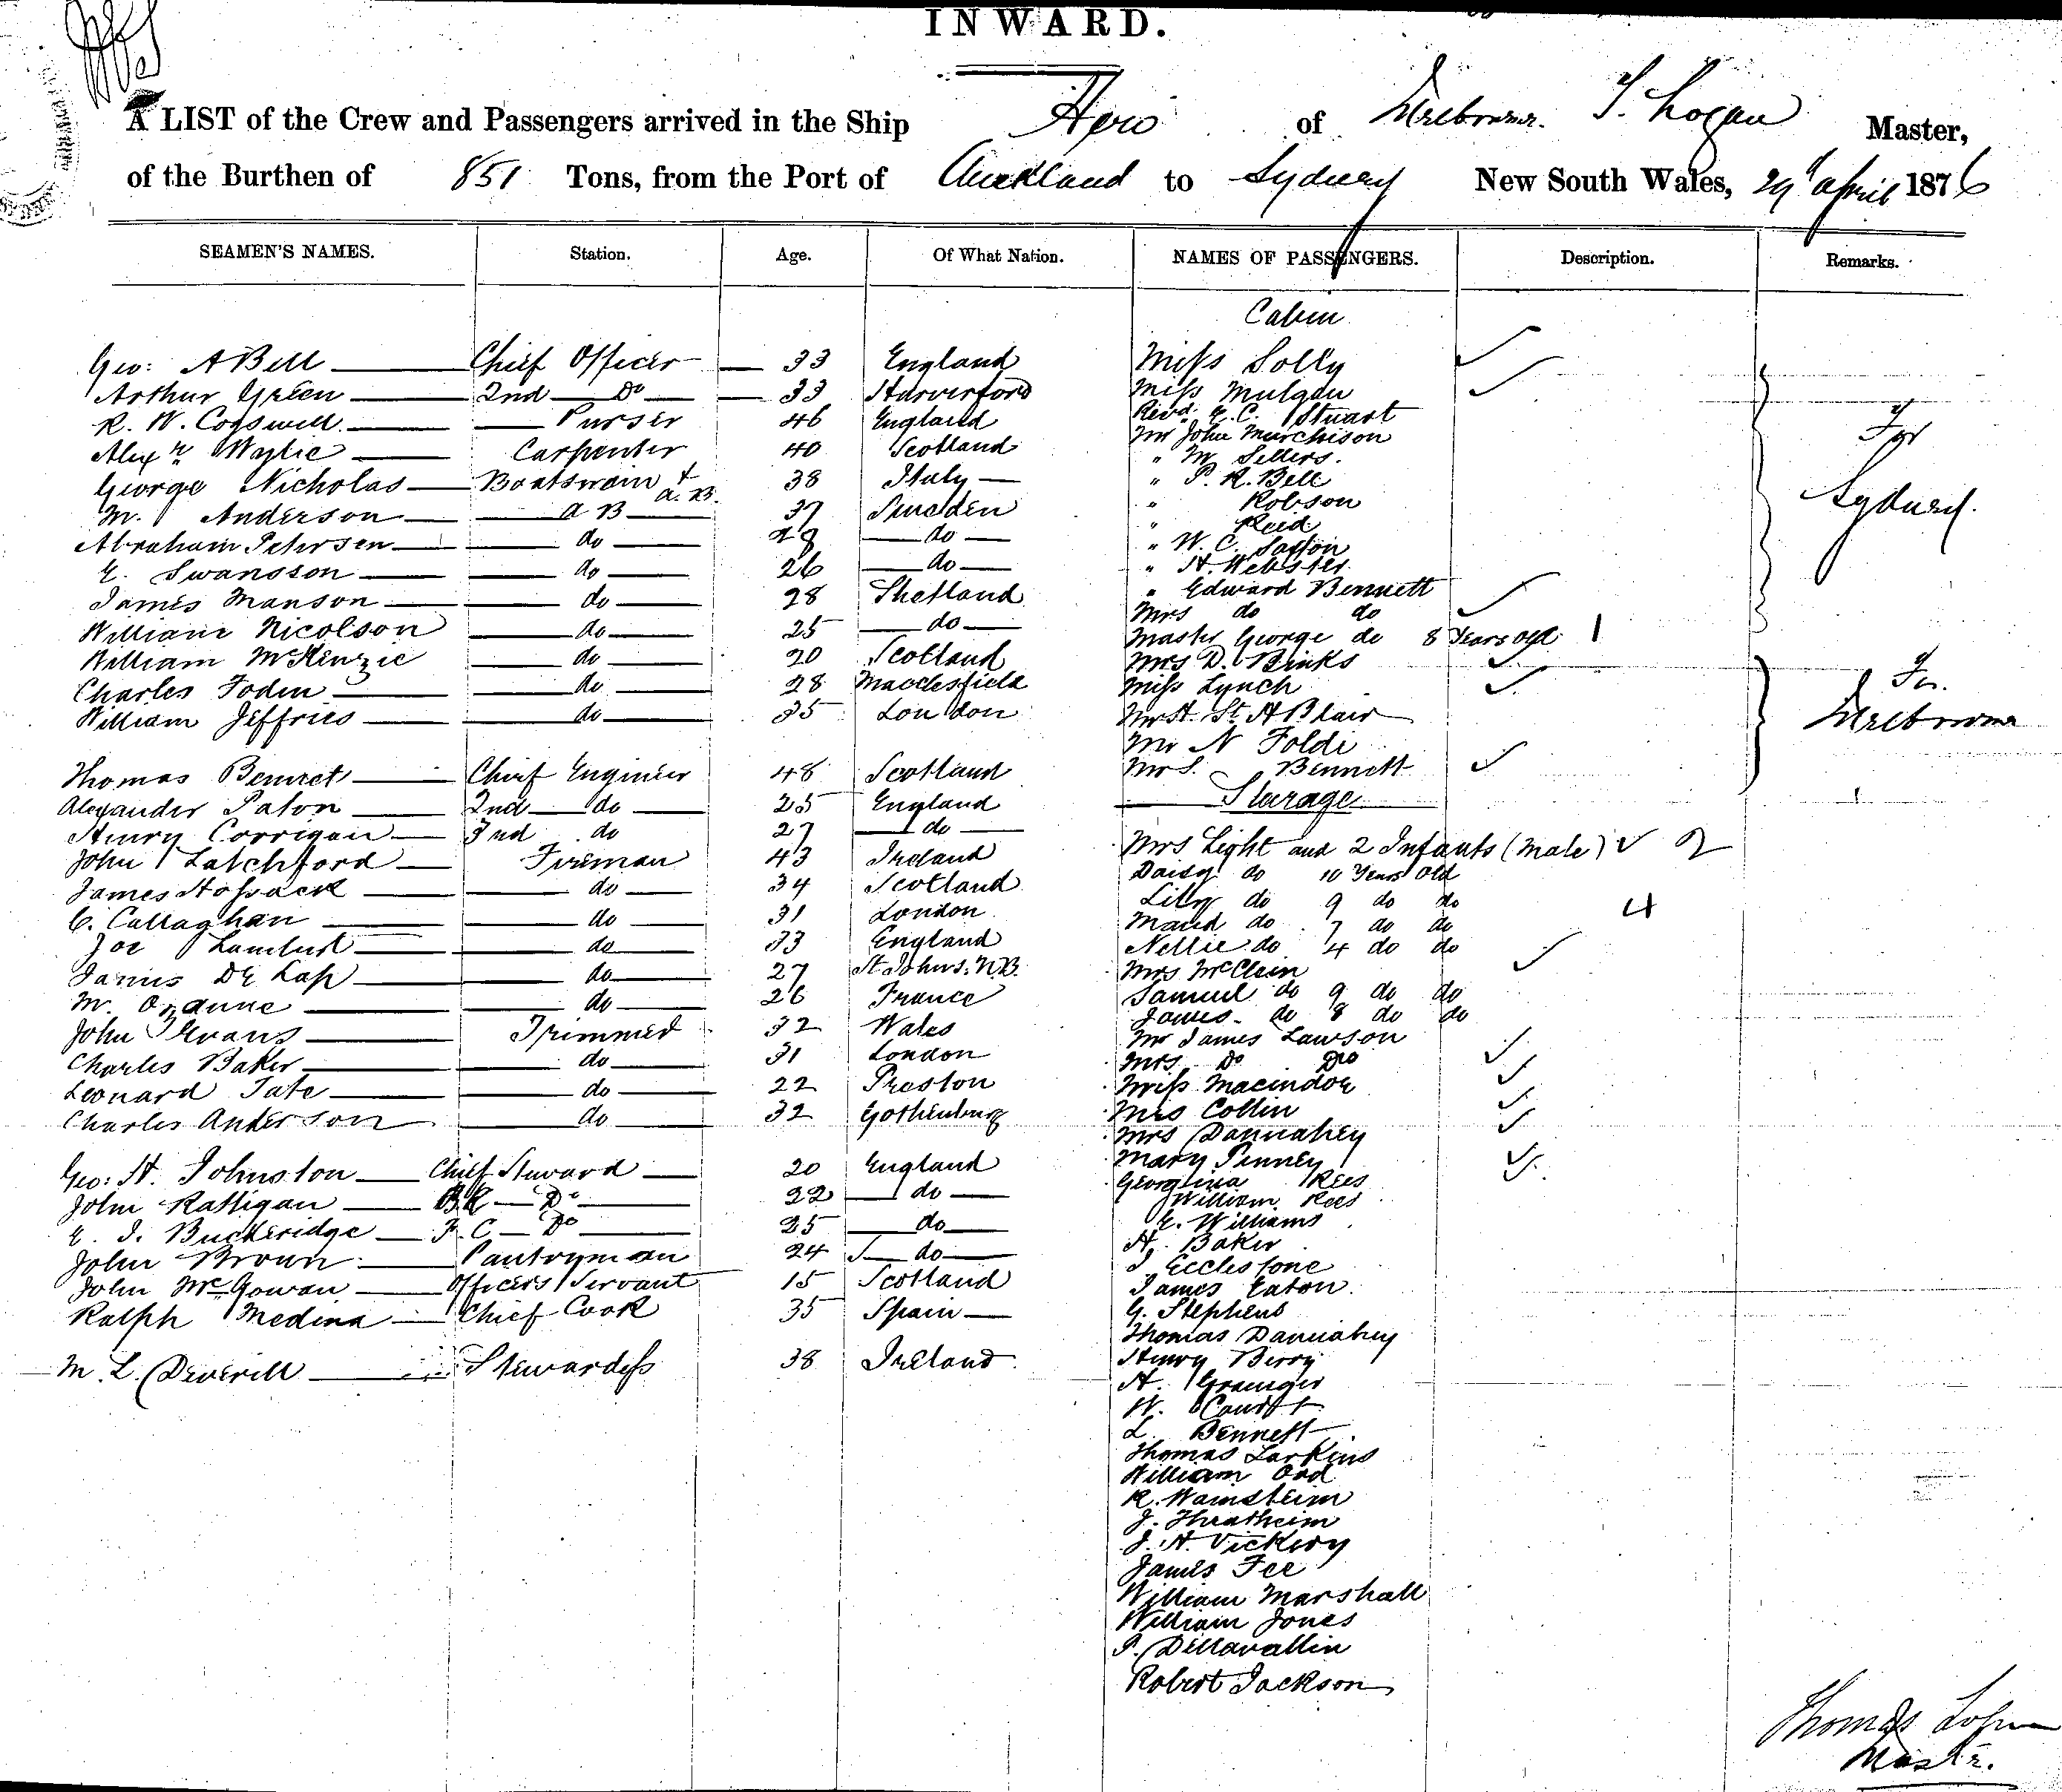 INWARD.
A LIST of the Crew and Passengers arrived in the Ship Hero of Melbourne. T. Logan Master,
of the Burthen of 851 Tons, from the Port of Auckland to Sydney New South Wales, 29th April 1876
SEAMEN'S NAMES. Station. Age. Of What Nation. NAMES OF PASSENGERS. Description. Remarks.
Cabin
Geo: A Bell Chief Officer 33 England Miss Solly
Arthur Green 2nd Do 33 Harverford Miss Mulgan
R. W. Cogswell. Purser 46 England Revd. E. C. Stuart
Alexr Wylie Carpenter 40 Scotland Mr John Murchison For
George Nicholas Boatswain & A.B. 38 Italy " M. Sellers.
" P. R. Bell Sydney.
M. Anderson A B 37 Sweden " Robson
Abraham Petersen do 28 do " Reid
E. Swansson do 26 do " W. C. Saffon
" H. Webster
James Manson do 28 Shetland " Edward Bennett
William Nicolson do 25 do Mrs do do
Master George do 8 Years old 1
William McKenzie do 20 Scotland Mrs D. Binks
Charles Foden do 28 Macclesfield Miss Lynch For
William Jeffries do 35 London St A Blair Melbourne
Mr N Foldi
Thomas Bennet Chief Engineer 48 Scotland Mrs. Bennett
Alexander Paton 2nd do 25 England Steerage
Henry Corrigan 3rd do 27 do
John Latchford Fireman 43 Ireland Mrs Light and 2 Infants (Male) 2
James Hossack do 34 Scotland Daisy do 10 Years old
C. Callaghan do 31 London Lilly do 9 do do 4
Maud do 7 do do
Joe Lambert do 33 England Nellie do 4 do do
James De Lap do 27 St Johns. N.B. Mrs McClean
M. Ozanne do 26 France Samuel do 9 do do
John Evans Trimmer 32 Wales James do 8 do do
Mr James Lawson
Charles Baker do 31 London Mrs Do Do
Leonard Tate do 22 Preston Miss Macindoe
Charles Anderson do 32 Gothenburg Mrs Collin
Mrs Dannahey
Geo: H. Johnston Chief Steward 20 England Mary Penney
Georgina Rees
John Rattigan B.R Do 22 do William Rees
E. J. Buckeridge F. C Do 25 do E. Williams
John Brown Pantryman 24 do A. Baker
J Ecclestone
John McGowan Officers Servant 15 Scotland James Eaton.
Ralph Medina Chief Cook 35 Spain G. Stephens
Thomas Dannahey
M. L. Deverill Stewardess 38 Ireland Henry Berry
A. Grainger
W.
L. Bennett
Thomas Larkins
William Ord
R. Wamsteim
J. Threatheim
J. H. Vickery
James Fee
William Marshall
William Jones
P. Dellavallin
Robert Jackson
Thomas Logan
Master.